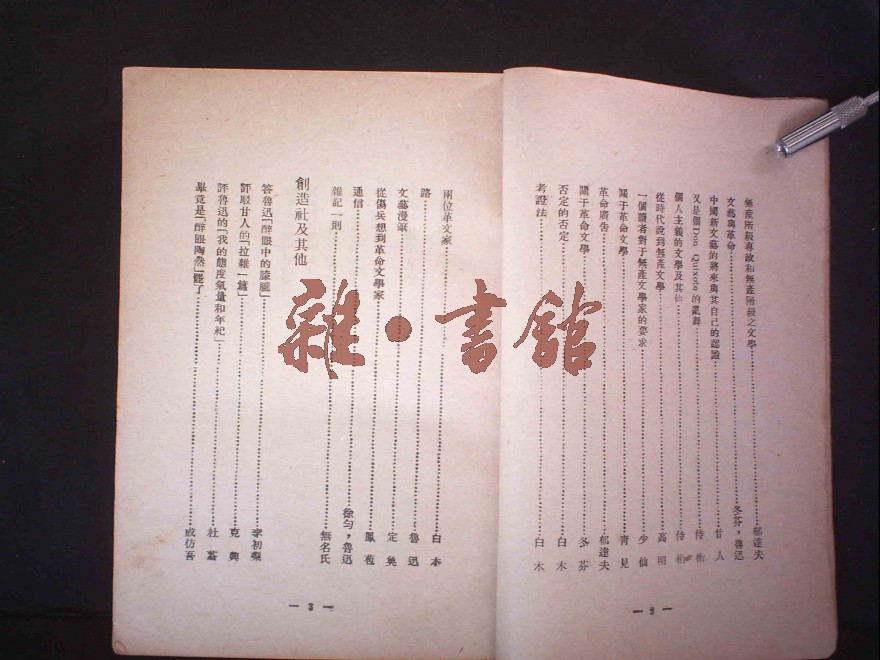 無產階級專政和無產階級之文學……郁達夫
文藝與革命……冬芬，魯迅
中國新文藝的將來與其自己的認識……甘人
又是個Don Quixote的亂舞……侍桁
個人主義的文學及其他……侍桁
從時代說到無產文學……高明
一個讀者對于無產文學家的要求……少仙
關于革命文學……青見
革命廣告……郁達夫
關于革命文學……冬芬
否定的否定……白木
考證法……白木
— 2 —
兩位革文家……白本
路……魯迅
文藝漫筆……定奐
從傷兵想到革命文學家……鳳苞
通信……徐勻，魯迅
雜記一則……無名氏
創造社及其他
答魯迅「醉眼中的朦朧」……李初梨
評駁甘人的「拉雜一篇」……克興
評魯迅的「我的態度氣量和年紀」……杜荃
畢竟是「醉眼陶然」罷了……成仿吾
— 3 —
雜·書館